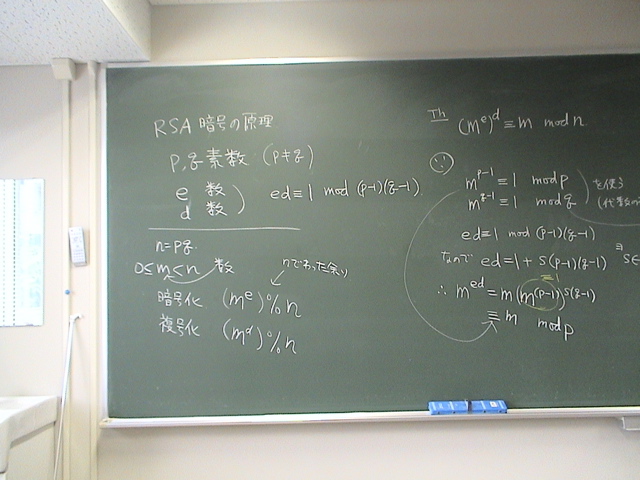 RSA 暗号の原理
p,q 素数 (p≠q)
e 数
d 数
ed≡1 mod (p-1)(q-1)
n=pq
0≤m<n 数
nでわった余り
暗号化 (m^e)%n
複号化 (m^d)%n
Th (m^e)^d ≡ m mod n
m^{p-1} ≡ 1 mod p
m^{q-1} ≡ 1 mod q
を使う
(代数の
ed≡1 mod (p-1)(q-1)
なので ed=1+s(p-1)(q-1) ∃
s∈
≡1
∴ m^{ed} = m(m^{(p-1)})^{s(q-1)}
≡ m mod p